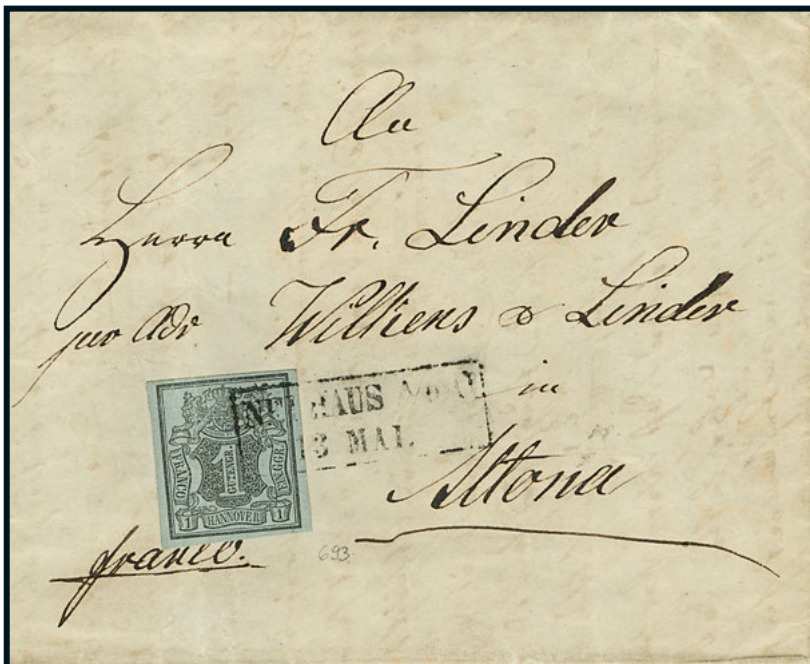 An
Herrn Fr. Linder
per Adr Wilkens & Linder
in
Altona
franco.
HAUS
13 MAI.
FRANCO
1
GUTENGR.
EINGGR.
1 HANNOVER 1
693